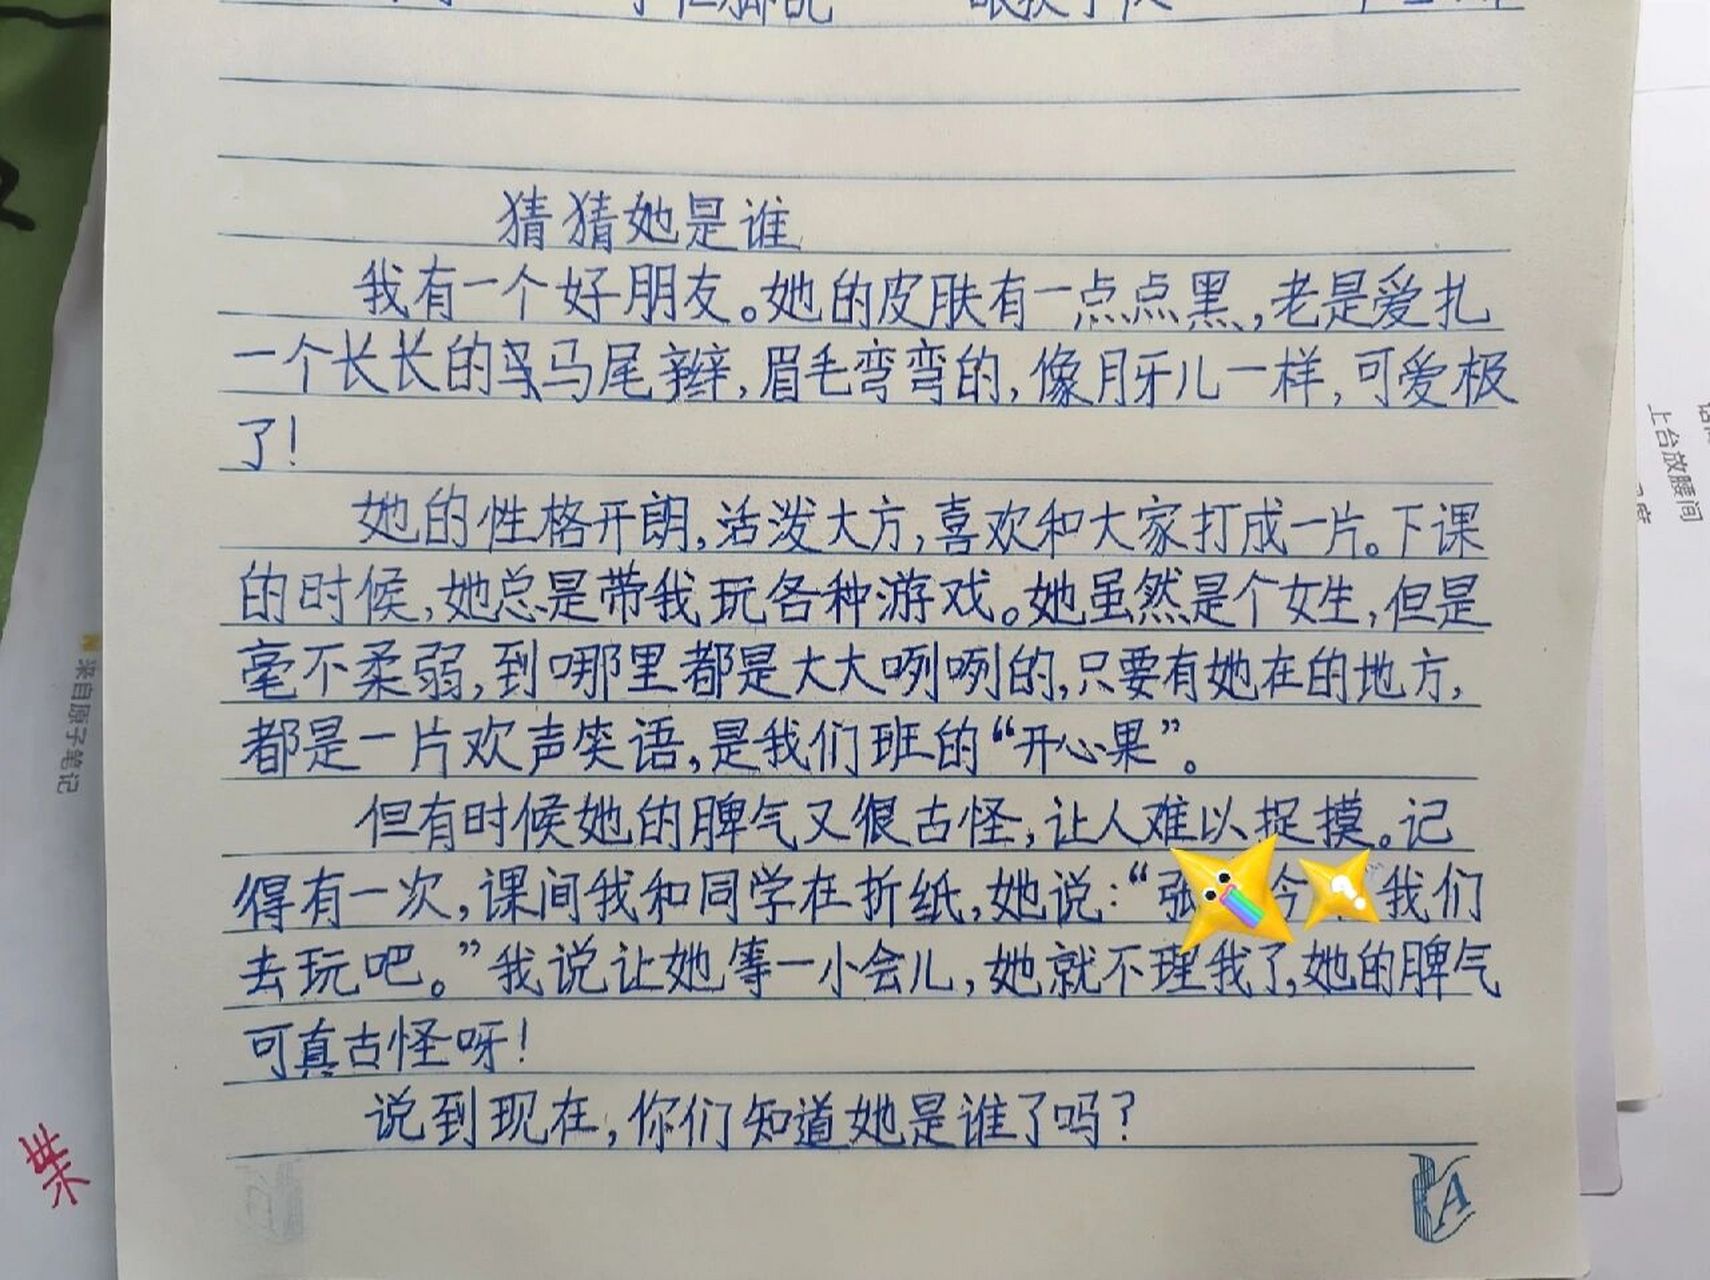 猜猜她是谁
我有一个好朋友。她的皮肤有一点点黑,老是爱扎
一个长长的马尾辫,眉毛弯弯的,像月牙儿一样,可爱极
了!
她的性格开朗,活泼大方,喜欢和大家打成一片。下课
的时候,她总是带我玩各种游戏。她虽然是个女生,但是
毫不柔弱,到哪里都是大大咧咧的,只要有她在的地方,
都是一片欢声笑语,是我们班的“开心果”。
但有时候她的脾气又很古怪,让人难以捉摸。记
得有一次,课间我和同学在折纸,她说:“张 今 我们
去玩吧。”我说让她等一小会儿,她就不理我了,她的脾气
可真古怪呀!
说到现在,你们知道她是谁了吗?
A
上台放腰间
来自原子笔记